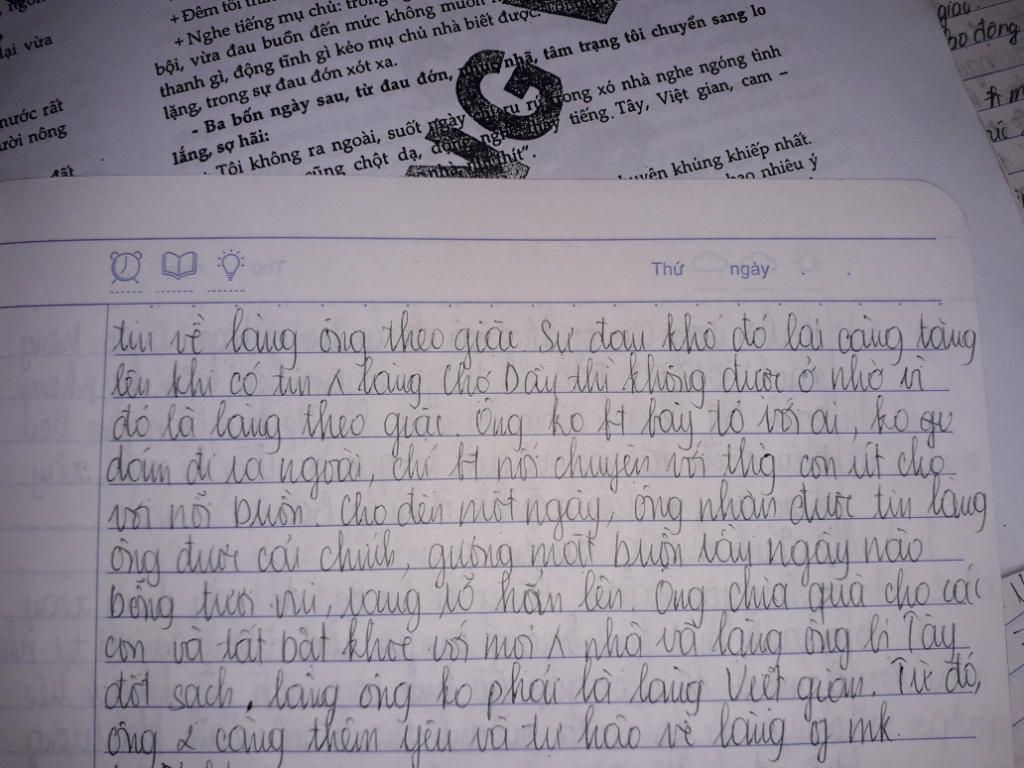 ại vừa
nước rất
ười nông
+ Đêm tối
+ Nghe tiếng mụ chủ:
bội, vừa đau buồn đến mức không muốn
thanh gì, động tĩnh gì kẻo mụ chủ nhà biết được.
lặng, trong sự đau đớn xót xa.
- Ba bốn ngày sau, từ đau đớn, nhã, tâm trạng tôi chuyển sang lo
lắng, sợ hãi:
Tôi không ra ngoài, suốt ngày ru rú trong xó nhà nghe ngóng tình
cũng chột dạ, tiếng. Tây, Việt gian, cam –
nhà thịt".
khủng khiếp nhất.
bao nhiêu ý
giau
ho động
Thứ ngày
tin về làng ông theo giặc Sự đau khổ đó lại càng tăng
lên khi có tin ^ làng Chợ Dầu thì không được ở nhờ vì
đó là làng theo giặc. Ông ko bt bày tỏ với ai, ko
dám đi ra ngoài, chỉ bt nói chuyện với thg con út cho
vơi nỗi buồn. Cho đến một ngày, ông nhận được tin làng
ông được cải chính, gương mặt buồn rầu ngày nào
bỗng tươi vui, rạng rỡ hẳn lên. Ông chia quà cho các
con và tất bật khoe với mọi ^ nhà và làng ông bị Tây
đốt sạch, làng ông ko phải là làng Việt gian. Từ đó,
ông 2 càng thêm yêu và tự hào về làng q mk.